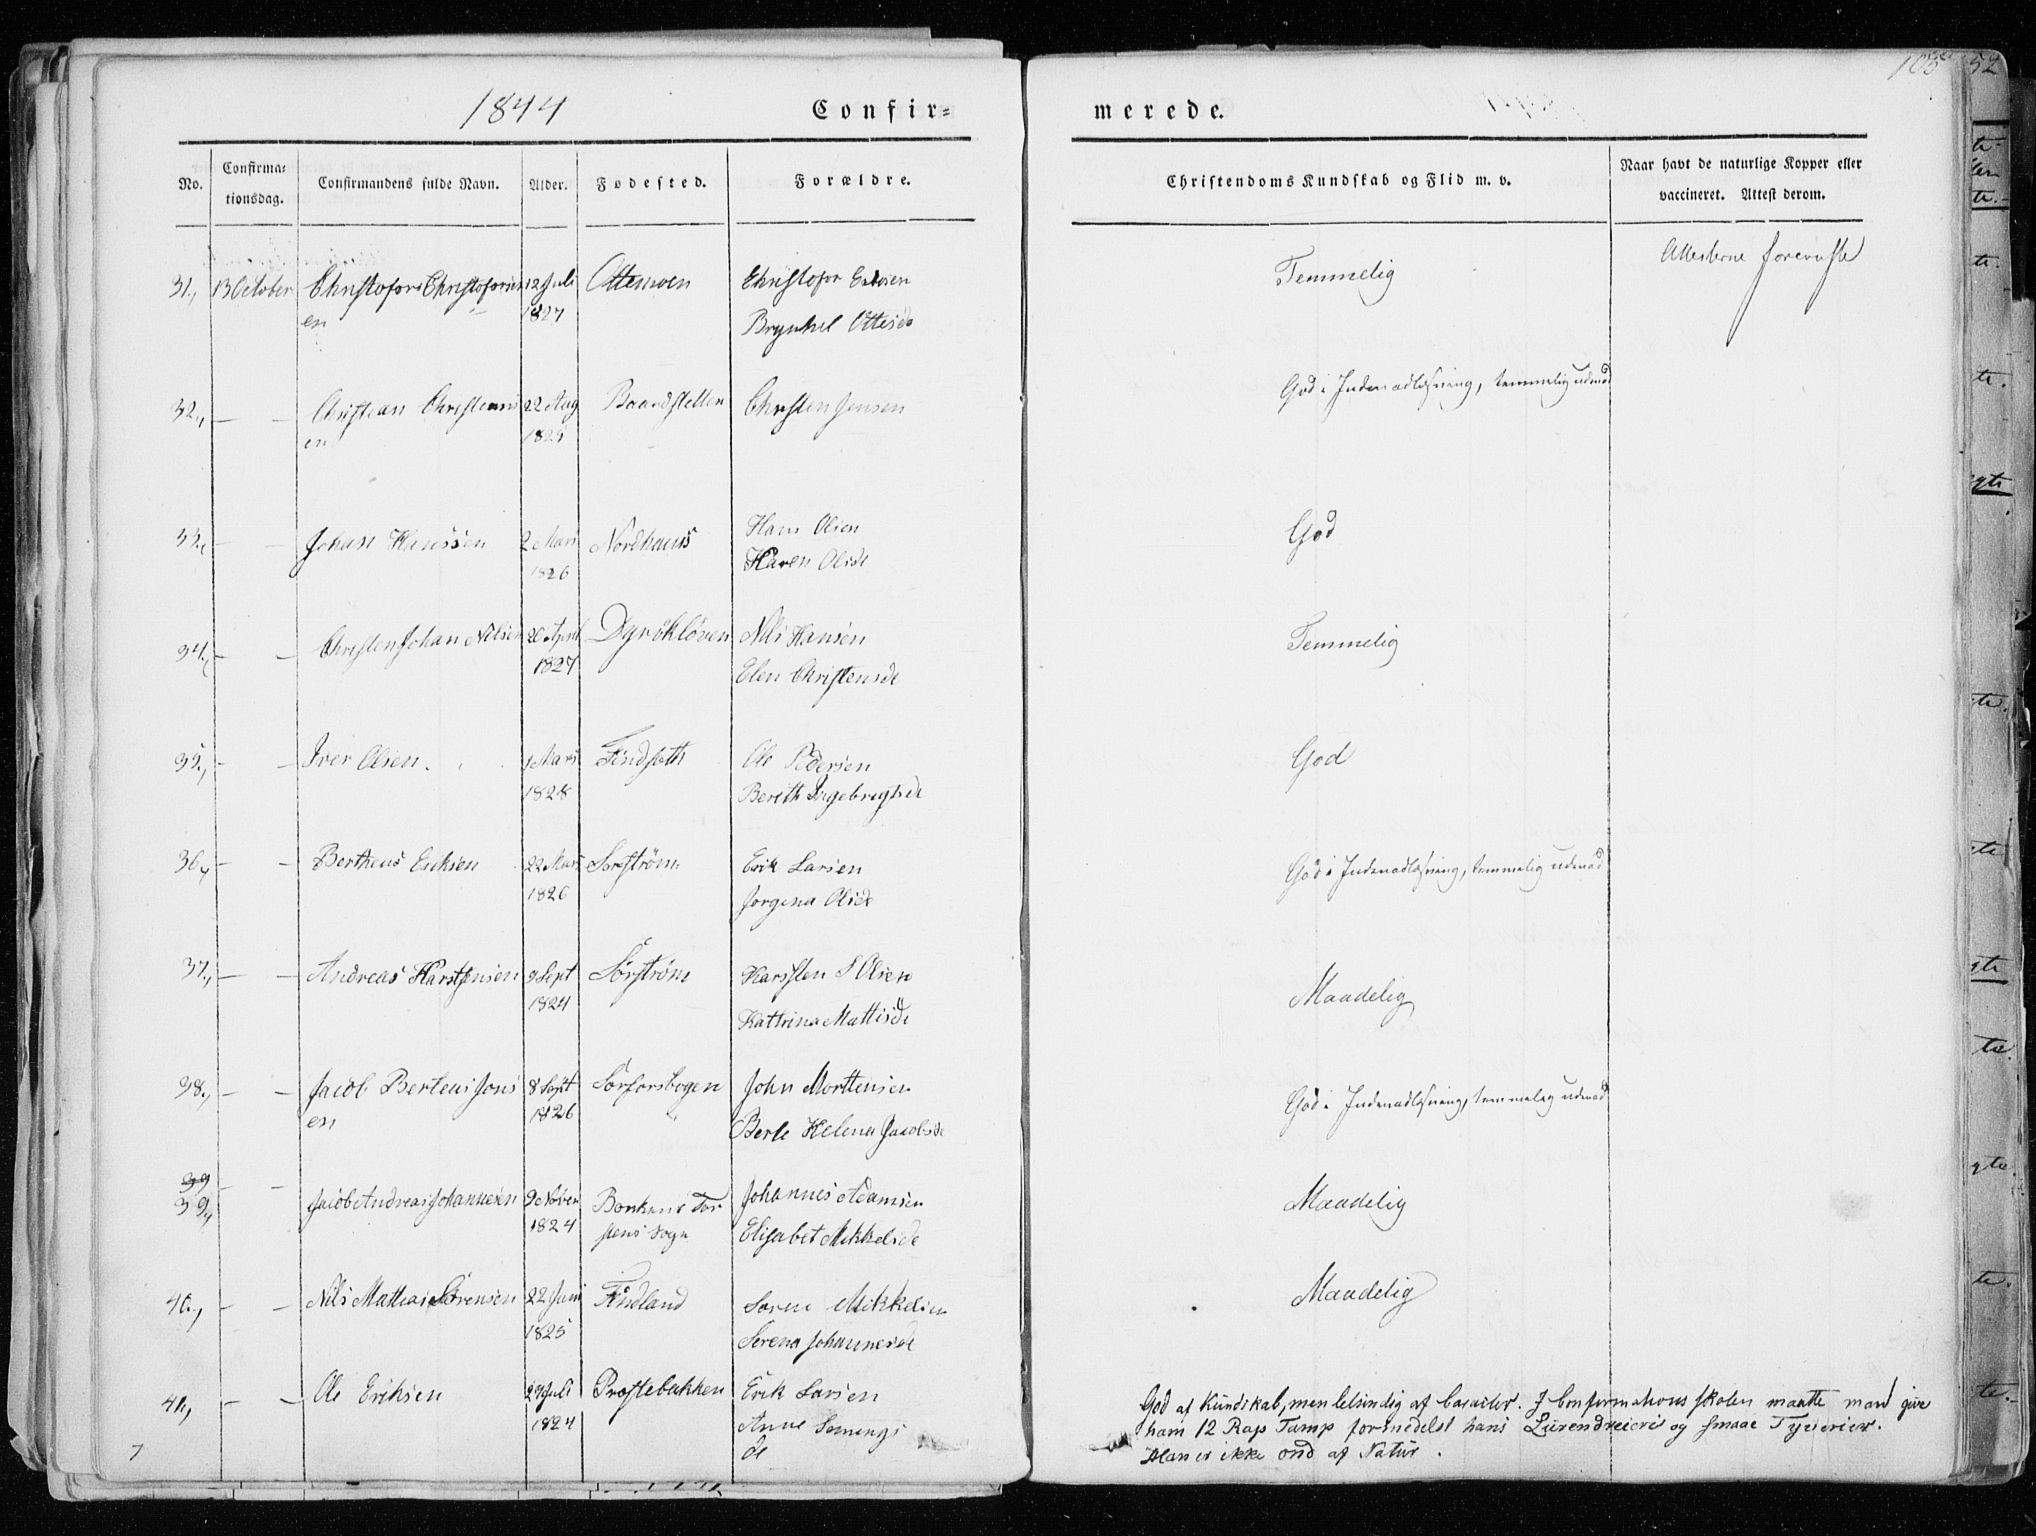 1844 Confir= merede. 105
No. Confirma-tionsdag. Confirmandens fulde Navn. Alder. Fødested. Forældre. Christendoms Kundskab og Flid m. v. Naar havt de naturlige Kopper eller vaccineret. Attest derom.
31, 13 October 12 Juli Ottemoen Christofor Temmelig Attesterne foreviste
en 1827 Brynhel Ottesd
32, — — Christian Christians 22 Aug Christen Jensen God i Indenadlæsning, temmelig udenad
en 1825
33, — — Johan Hanssen 2 Mars Nordhaus Hans Olsen God
1826 Karen Olsd
34, — — Christen Johan Nilsen 20 April Dyrøkløven Nils Hansen Temmelig
1827 Elen Christensd
35, — — Iver Olsen 1 Mars Findsæth Ole Pedersen God
1828 Berith Ingebrigtsd
36, — — Bertheus Eriksen 22 Mars Sørstrøm Erik Larsen God i Indenadlæsning, temmelig udenad
1826 Jorgina Olsd
37, — — Andreas Karstensen 9 Sept Sørstrøm Karsten Olsen Maadelig
1824 Kattrina Mattisd
38, — — Jacob Berteus Jons 8 Sept Sørforsbogen John Morttensen God i Indenadlæsning, temmelig udenad
en 1826 Berte Helena Jacobsd
39
39, — — Jacob Andreas Johannesen 9 Novem Johannes Adamsen Maadelig
1824 Elisabet Mikkelsd
stens Sogn
40, — — Nils Matheas Sørensen 22 Juni Findland Søren Mikkelsen Maadelig
1825 Serena Johannesd
41, — — Ole Eriksen 29 Juli Præstebakken Erik Larsen God af Kundskab, men letsindig af Caracter. I Confirmations skolen maatte man give
1824 Anne ham 12 Rap Tamp formedelst hans Lurendreieri og smaae Tyverier.
de Han er ikke ond af Natur.
7